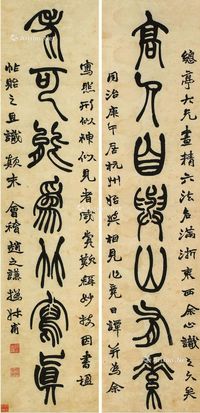 高人自與山有素
總亭大兄畫精六法名滿浙東西余心識之久矣
同治庚午居杭州始相見竟日譚并為余
老可能為竹寫真
寫照形似神似見者咸歎妙因書楹
帖貽之且識顛末 會稽趙之謙撝叔甫